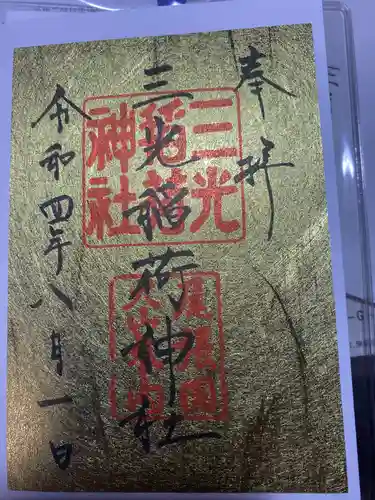 奉拝
三光稲荷神社
令和四年八月一日
三光
稲荷
神社
尾張国
犬山